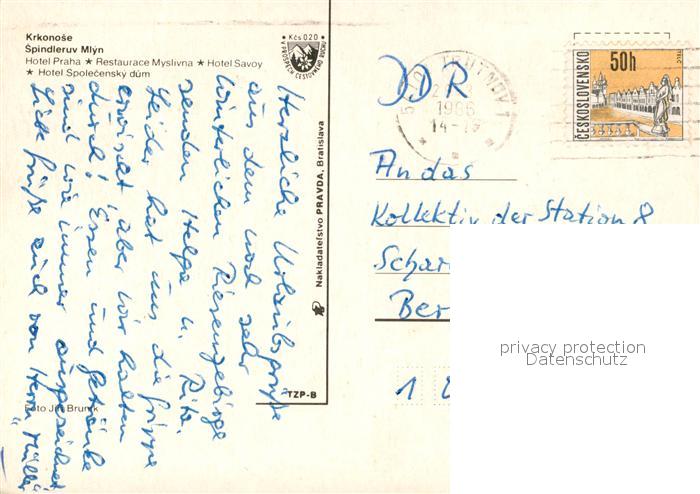 Krkonoše
Špindlerův Mlýn
Hotel Praha ★ Restaurace Myslivna ★ Hotel Savoy
★ Hotel Společenský dům
Kčs 0,20
V PROSPĚCH CESTOVNÍHO RUCHU
Herzliche Urlaubsgrüße
aus dem noch sehr
winterlichen Riesengebirge
senden Helga u. Rita.
Leider hat uns die Grippe
erwischt, aber wir halten
durch! Essen und Getränke
sind wie immer ausgezeichnet
Liebe Grüße auch von Herrn Müller
Foto Jiří Bruník
Nakladateľstvo PRAVDA, Bratislava
TZP-B
DDR
TRUTNOV 1
1986
ČESKOSLOVENSKO
50h
TELČ
An das
Kollektiv der Station 8
Schar
Ber
1
privacy protection
Datenschutz